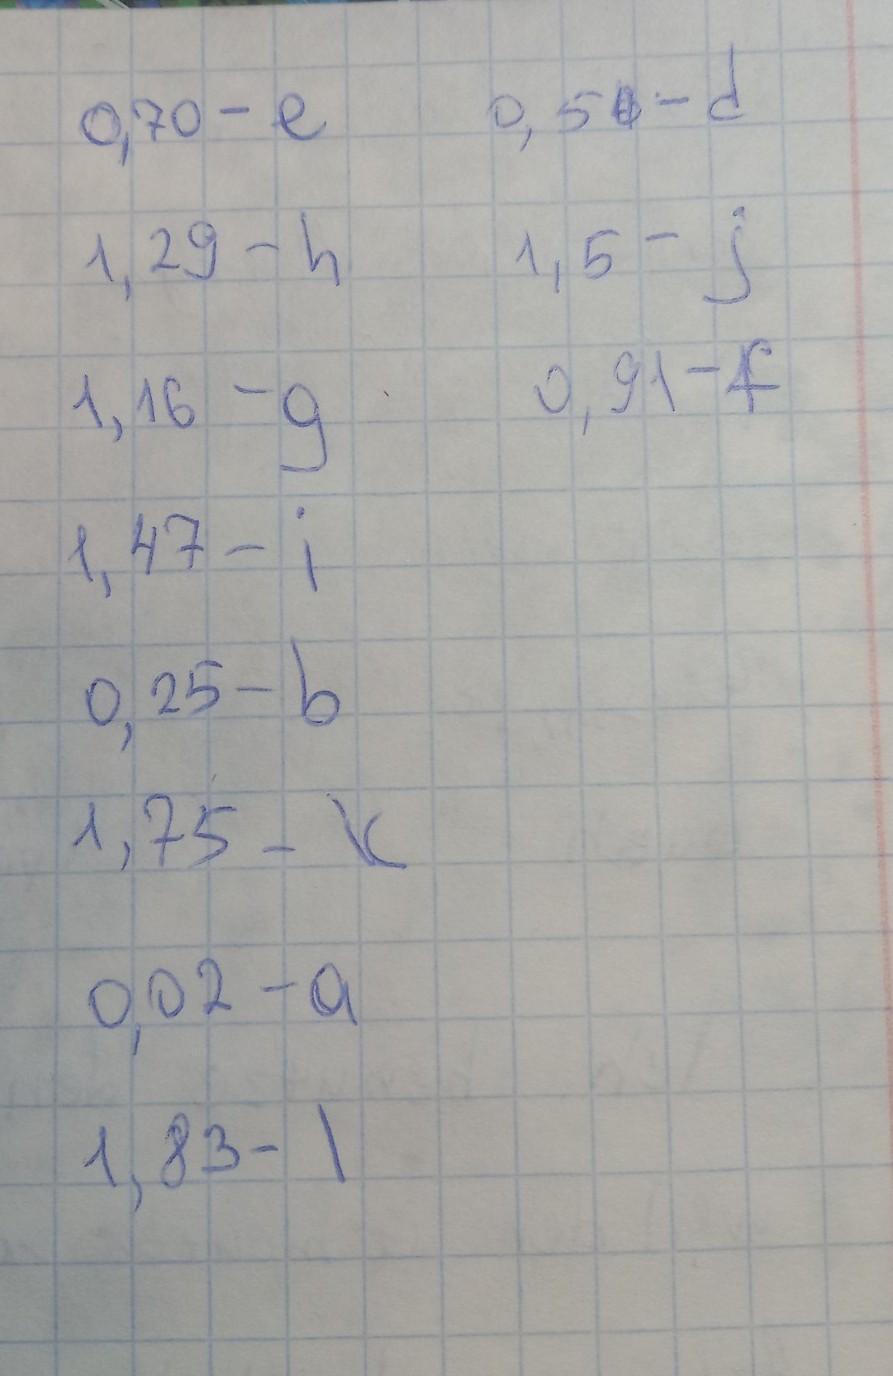 0,70 - e
1,29 - h
1,16 - g
1,47 - i
0,25 - b
1,75 - k
0,02 - a
1,83 - l
0,5 - d
1,5 - j
0,91 - f